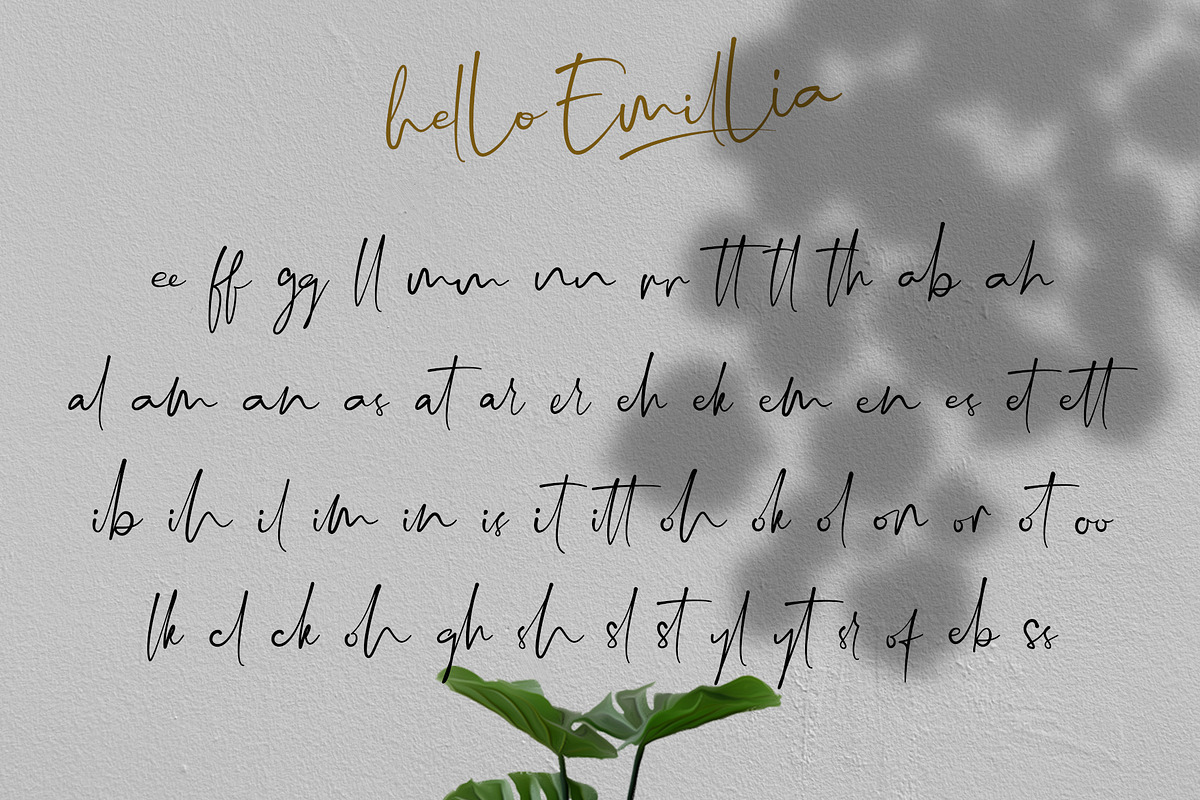 hello Emillia
ee ff gg ll mm nn rr tt tl th ab ah
al am an as at ar er eh ek em en es et ett
ib ih il im in is it itt oh ok ol on or ot oo
lk cl ck oh gh sh sl st yl yt sr of eb ss